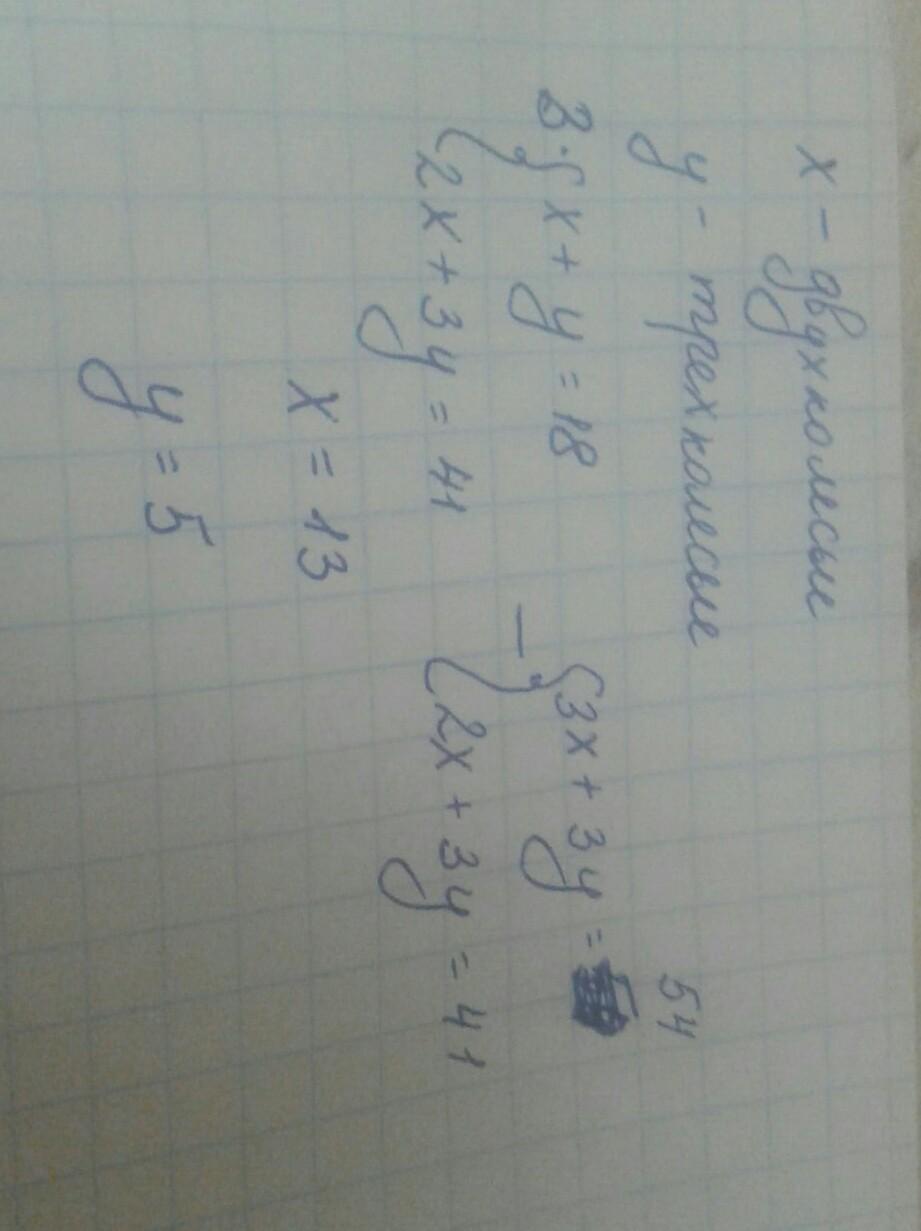 x - двухколесые
y - трехколесые
54
3·{ x + y = 18 - { 3x + 3y =
{ 2x + 3y = 41 { 2x + 3y = 41
x = 13
y = 5